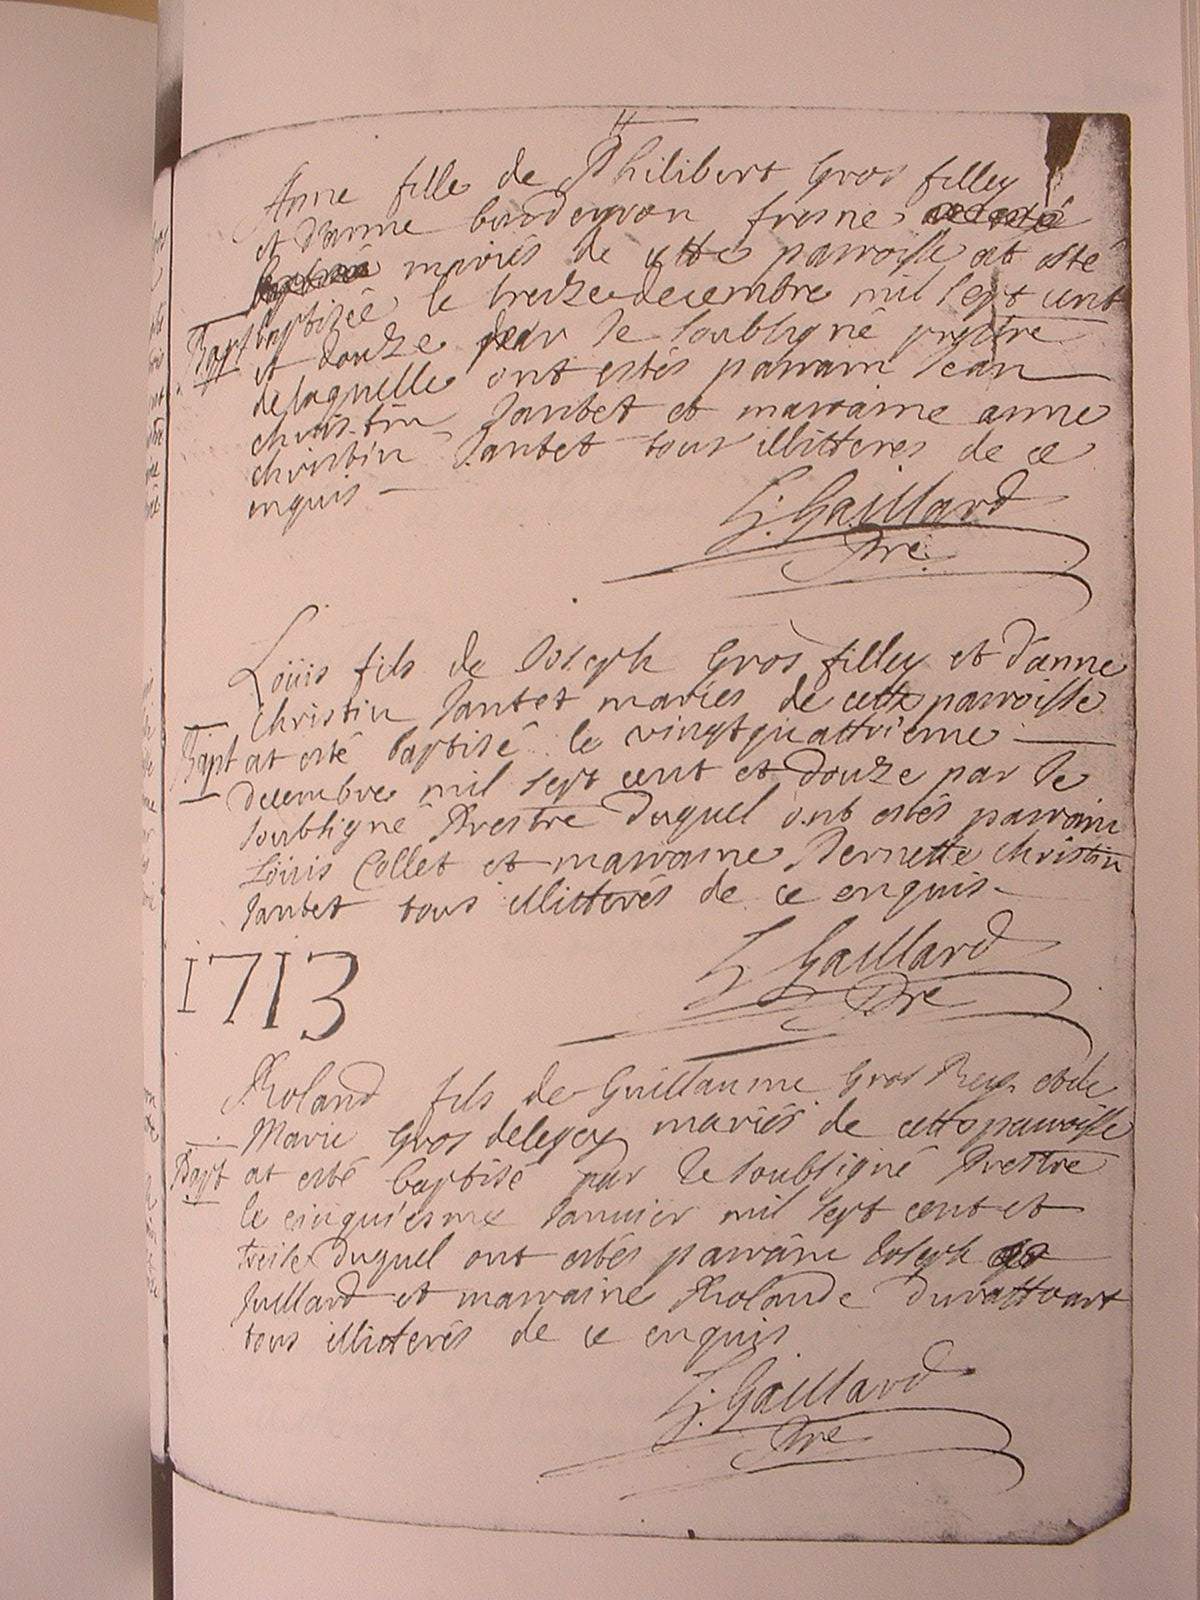 Anne fille de Philibert Gros filley
et d'anne bardeyron fresne
mariés de cette parroisse at esté
Bapt baptizée le treize decembre mil sept cent
et douze par le soubsigné prestre
de laquelle ont estés parrain Jean
christin Jantet et marraine anne
christin Jantet tous illitteres de ce
enquis
G. Gaillard
Pre
Loüis fils de Joseph Gros filley et d'anne
christin Jantet mariés de cette parroisse
Bapt at esté baptisé le vingtquattrieme
decembre mil sept cent et douze par le
soubsigné Prestre duquel ont estés parrain
Loüis Collet et marraine Pernette christin
Jantet tous illitterés de ce enquis
G Gaillard
Pre
1713
Roland fils de Guillaume Gros Rey et de
Marie Gros delegey mariés de cette parroisse
Bapt at esté baptisé par le soubsigné Prestre
le cinquiesme Januier mil sept cent et
treise duquel ont estés parrain Joseph
Juillard et marraine Rolande
tous illitterés de ce enquis
G. Gaillard
Pre